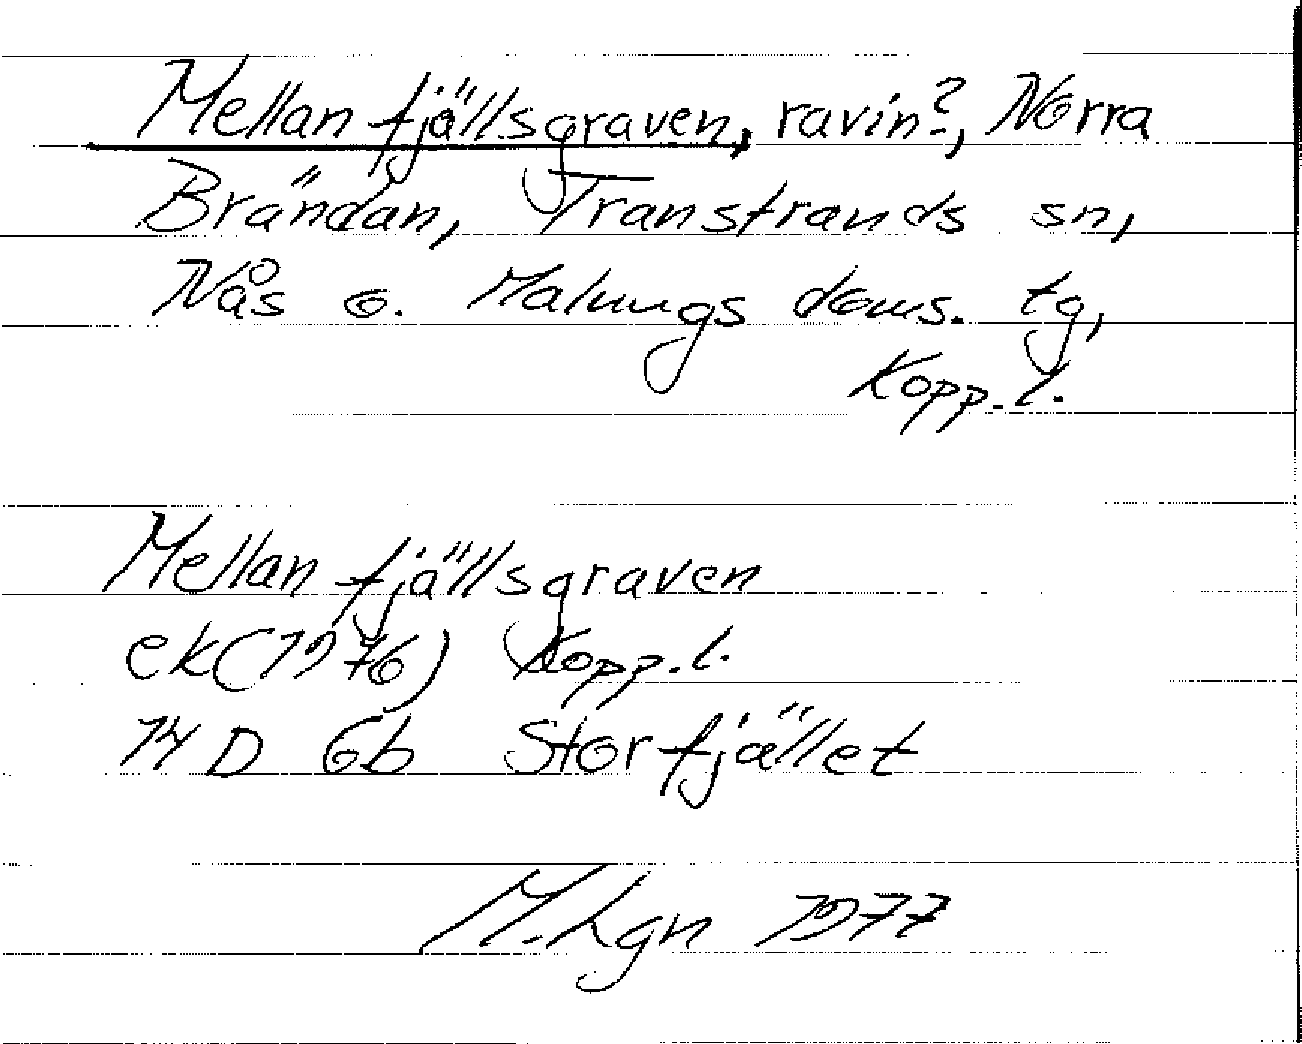 Mellanfjällsgraven, ravin?, Norra
Brändan, Transtrands sn,
Nås o. Malungs doms. tg,
Kopp. l.
Mellanfjällsgraven
ek(1976) Kopp. l.
14 D 6b Storfjället
M. Lgn 1977